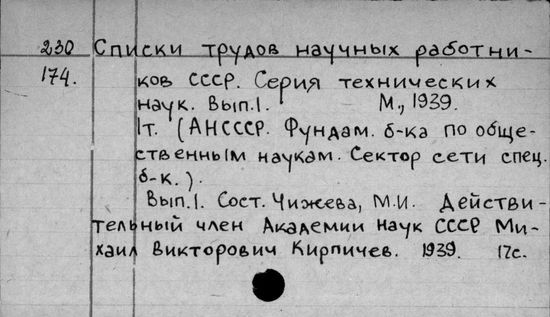 230 Списки трудов научных работни-
174. ков СССР. Серия технических
наук. Вып.1. М., 1939.
1т. (АНСССР. Фундам. б-ка по обще-
ственным наукам. Сектор сети спец.
б-к.).
Вып.1. Сост. Чижева, М.И. Действи-
тельный член Академии наук СССР Ми-
хаил Викторович Кирпичев. 1939. 17с.